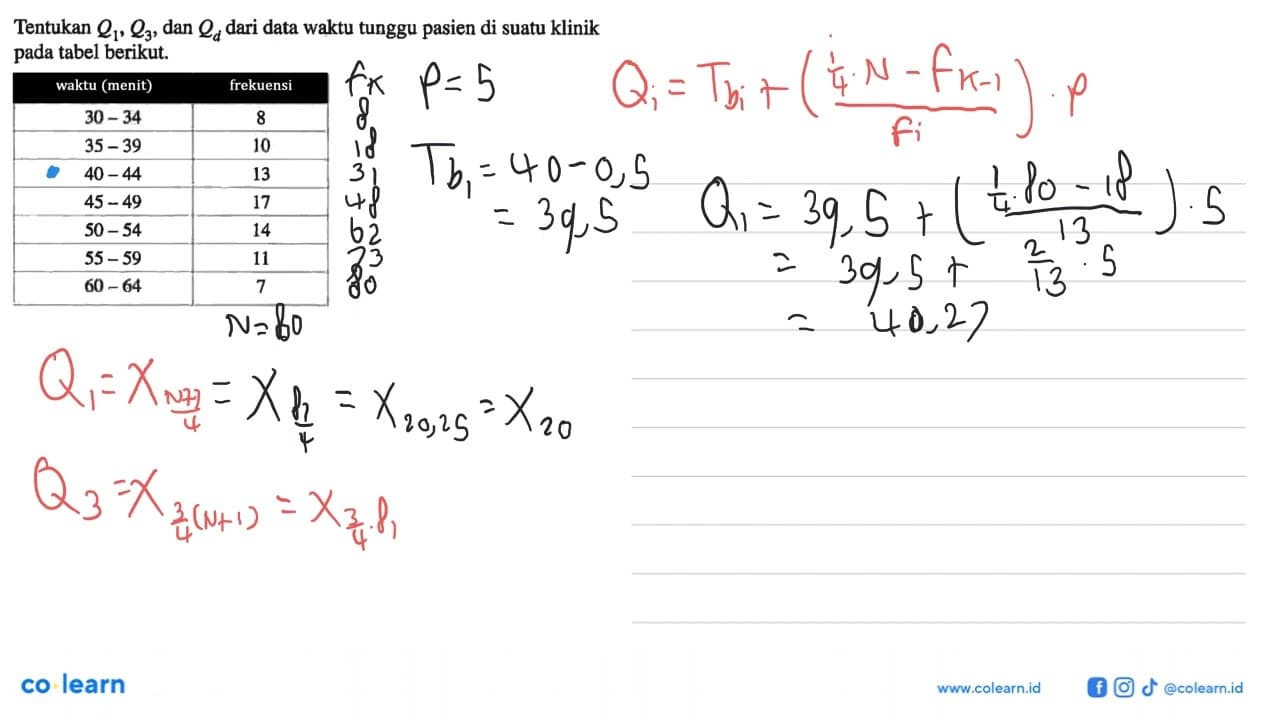 Tentukan Q₁, Q₃, dan Q_d dari data waktu tunggu pasien di suatu klinik
pada tabel berikut.
waktu (menit) frekuensi fₖ
30 – 34 8 8
35 – 39 10 18
40 – 44 13 31
45 – 49 17 48
50 – 54 14 62
55 – 59 11 73
60 – 64 7 80
N = 80
p = 5
Tb₁ = 40 - 0,5
= 39,5
Qᵢ = Tbᵢ + ((i/4 · N - fₖ₋₁)/fᵢ) · p
Q₁ = 39,5 + ((1/4 · 80 - 18)/13) · 5
= 39,5 + 2/13 · 5
= 40,27
Q₁ = X_(N+1)/4 = X_81/4 = X_20,25 = X_20
Q₃ = X_3/4(N+1) = X_3/4 · 81
co learn
www.colearn.id
@colearn.id